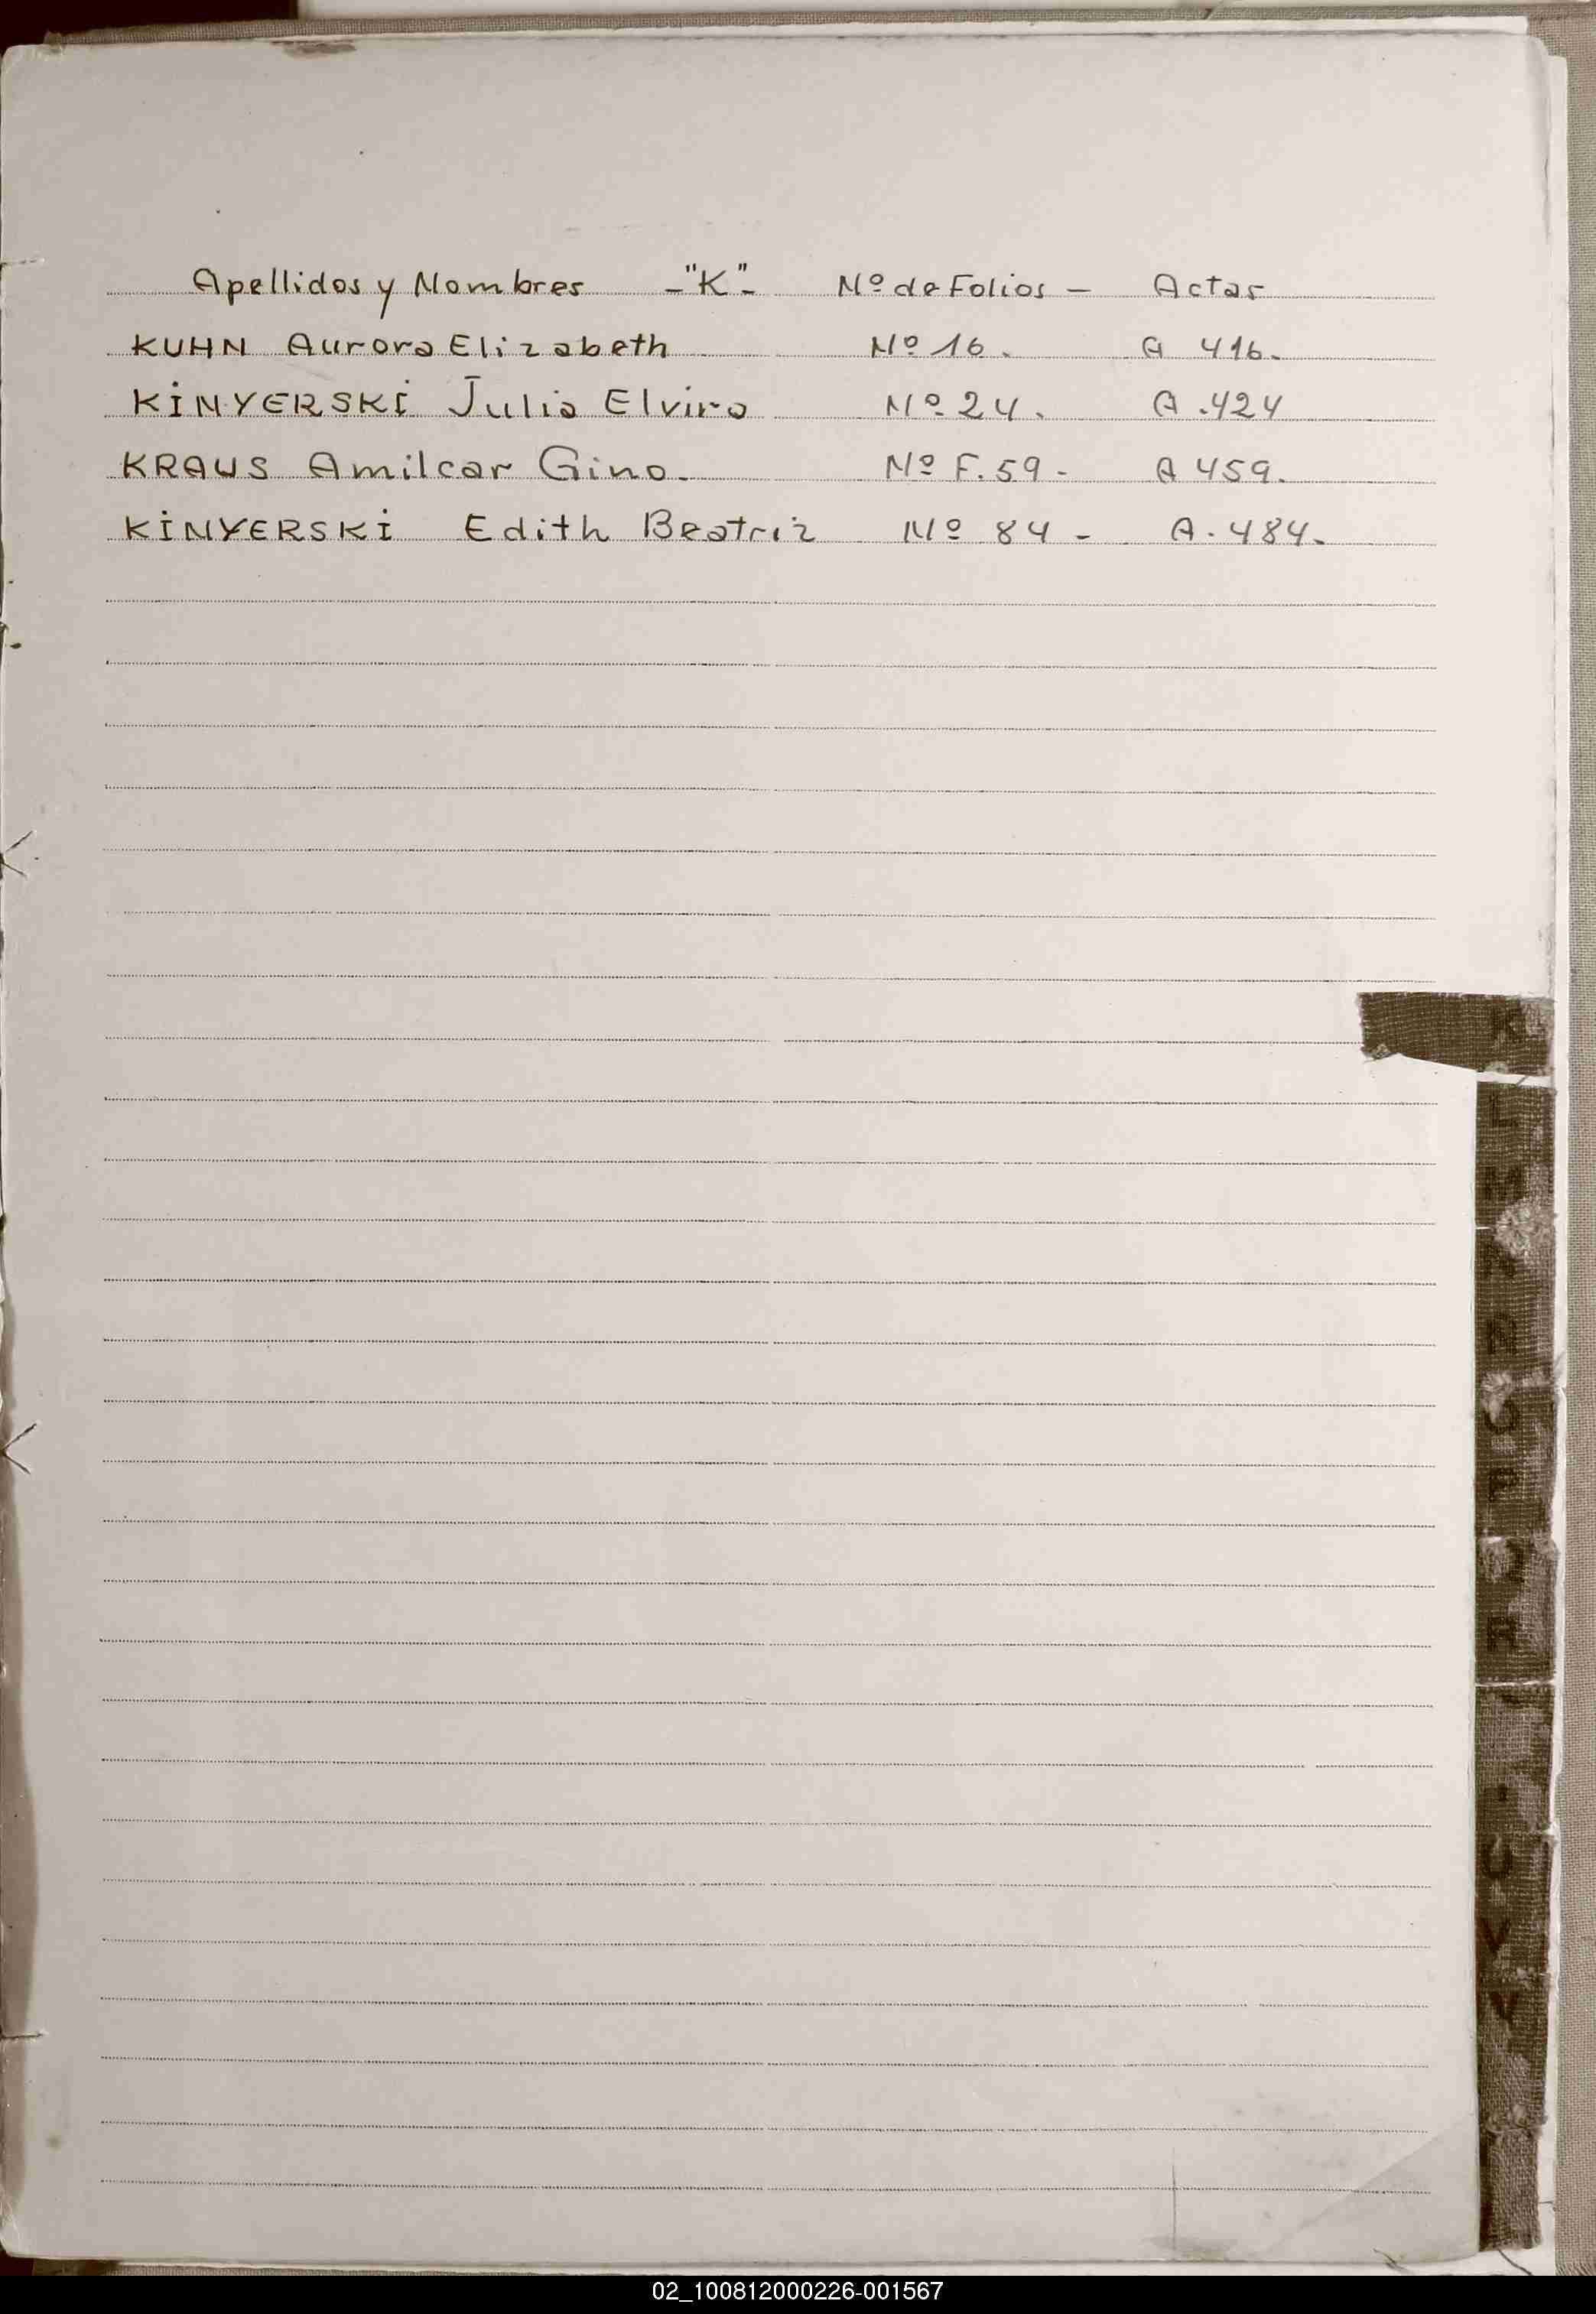 Apellidos y Nombres -"K"- Nº de Folios - Actas
KUHN Aurora Elizabeth Nº 16. A 416.
KINYERSKI Julia Elvira Nº 24. A.424
KRAUS Amilcar Gino. Nº F.59- A 459.
KINYERSKI Edith Beatriz Nº 84- A.484.
K
L
M
R
U
V
Y
02_100812000226-001567